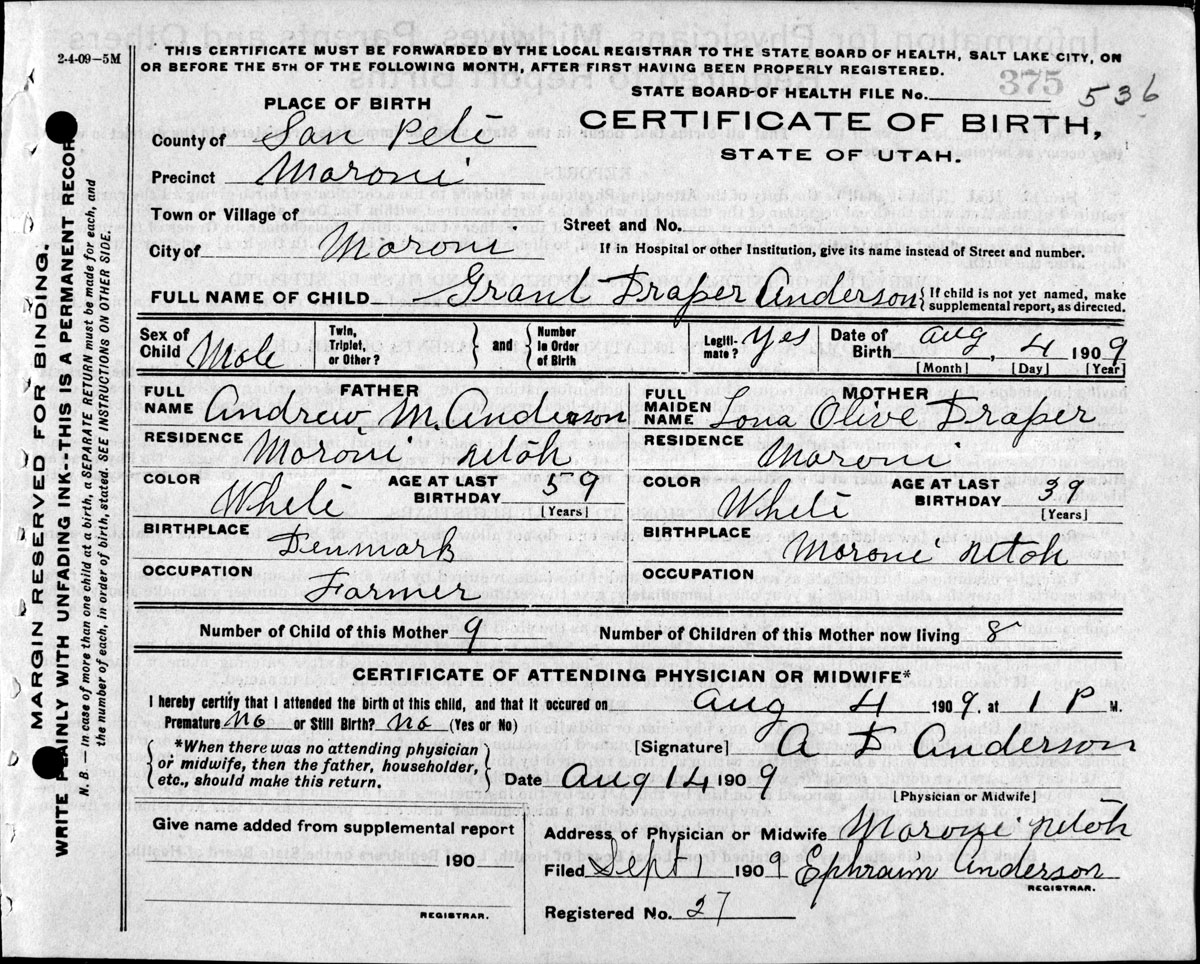 2-4-09—5M
THIS CERTIFICATE MUST BE FORWARDED BY THE LOCAL REGISTRAR TO THE STATE BOARD OF HEALTH, SALT LAKE CITY, ON
OR BEFORE THE 5TH OF THE FOLLOWING MONTH, AFTER FIRST HAVING BEEN PROPERLY REGISTERED.
375
STATE BOARD OF HEALTH FILE No. 536
PLACE OF BIRTH
CERTIFICATE OF BIRTH,
STATE OF UTAH.
County of San Pete
Precinct Moroni
Town or Village of
Street and No.
City of Moroni
If in Hospital or other Institution, give its name instead of Street and number.
FULL NAME OF CHILD Grant Draper Anderson { If child is not yet named, make
supplemental report, as directed.
Sex of Child Male
Twin, Triplet, or Other? } and { Number in Order of Birth
Legiti-mate? Yes
Date of Birth Aug, 4 1909
[Month] [Day] [Year]
FATHER
FULL NAME Andrew M. Anderson
RESIDENCE Moroni Utah
COLOR White AGE AT LAST BIRTHDAY 59
[Years]
BIRTHPLACE Denmark
OCCUPATION Farmer
MOTHER
FULL MAIDEN NAME Lona Olive Draper
RESIDENCE Moroni
COLOR White AGE AT LAST BIRTHDAY 39
[Years]
BIRTHPLACE Moroni Utah
OCCUPATION
Number of Child of this Mother 9 Number of Children of this Mother now living 8
CERTIFICATE OF ATTENDING PHYSICIAN OR MIDWIFE*
I hereby certify that I attended the birth of this child, and that it occured on Aug 4 1909. at 1 P M.
Premature No or Still Birth? no (Yes or No)
{ *When there was no attending physician
or midwife, then the father, householder,
etc., should make this return. }
[Signature] A D Anderson
Date Aug 14 1909
[Physician or Midwife]
Give name added from supplemental report
190
REGISTRAR.
Address of Physician or Midwife Moroni Utah
Filed Sept 1 1909 Ephraim Anderson
REGISTRAR.
Registered No. 27
MARGIN RESERVED FOR BINDING.
WRITE PLAINLY WITH UNFADING INK--THIS IS A PERMANENT RECORD
N. B. — In case of more than one child at a birth, a SEPARATE RETURN must be made for each, and
the number of each, in order of birth, stated. SEE INSTRUCTIONS ON OTHER SIDE.